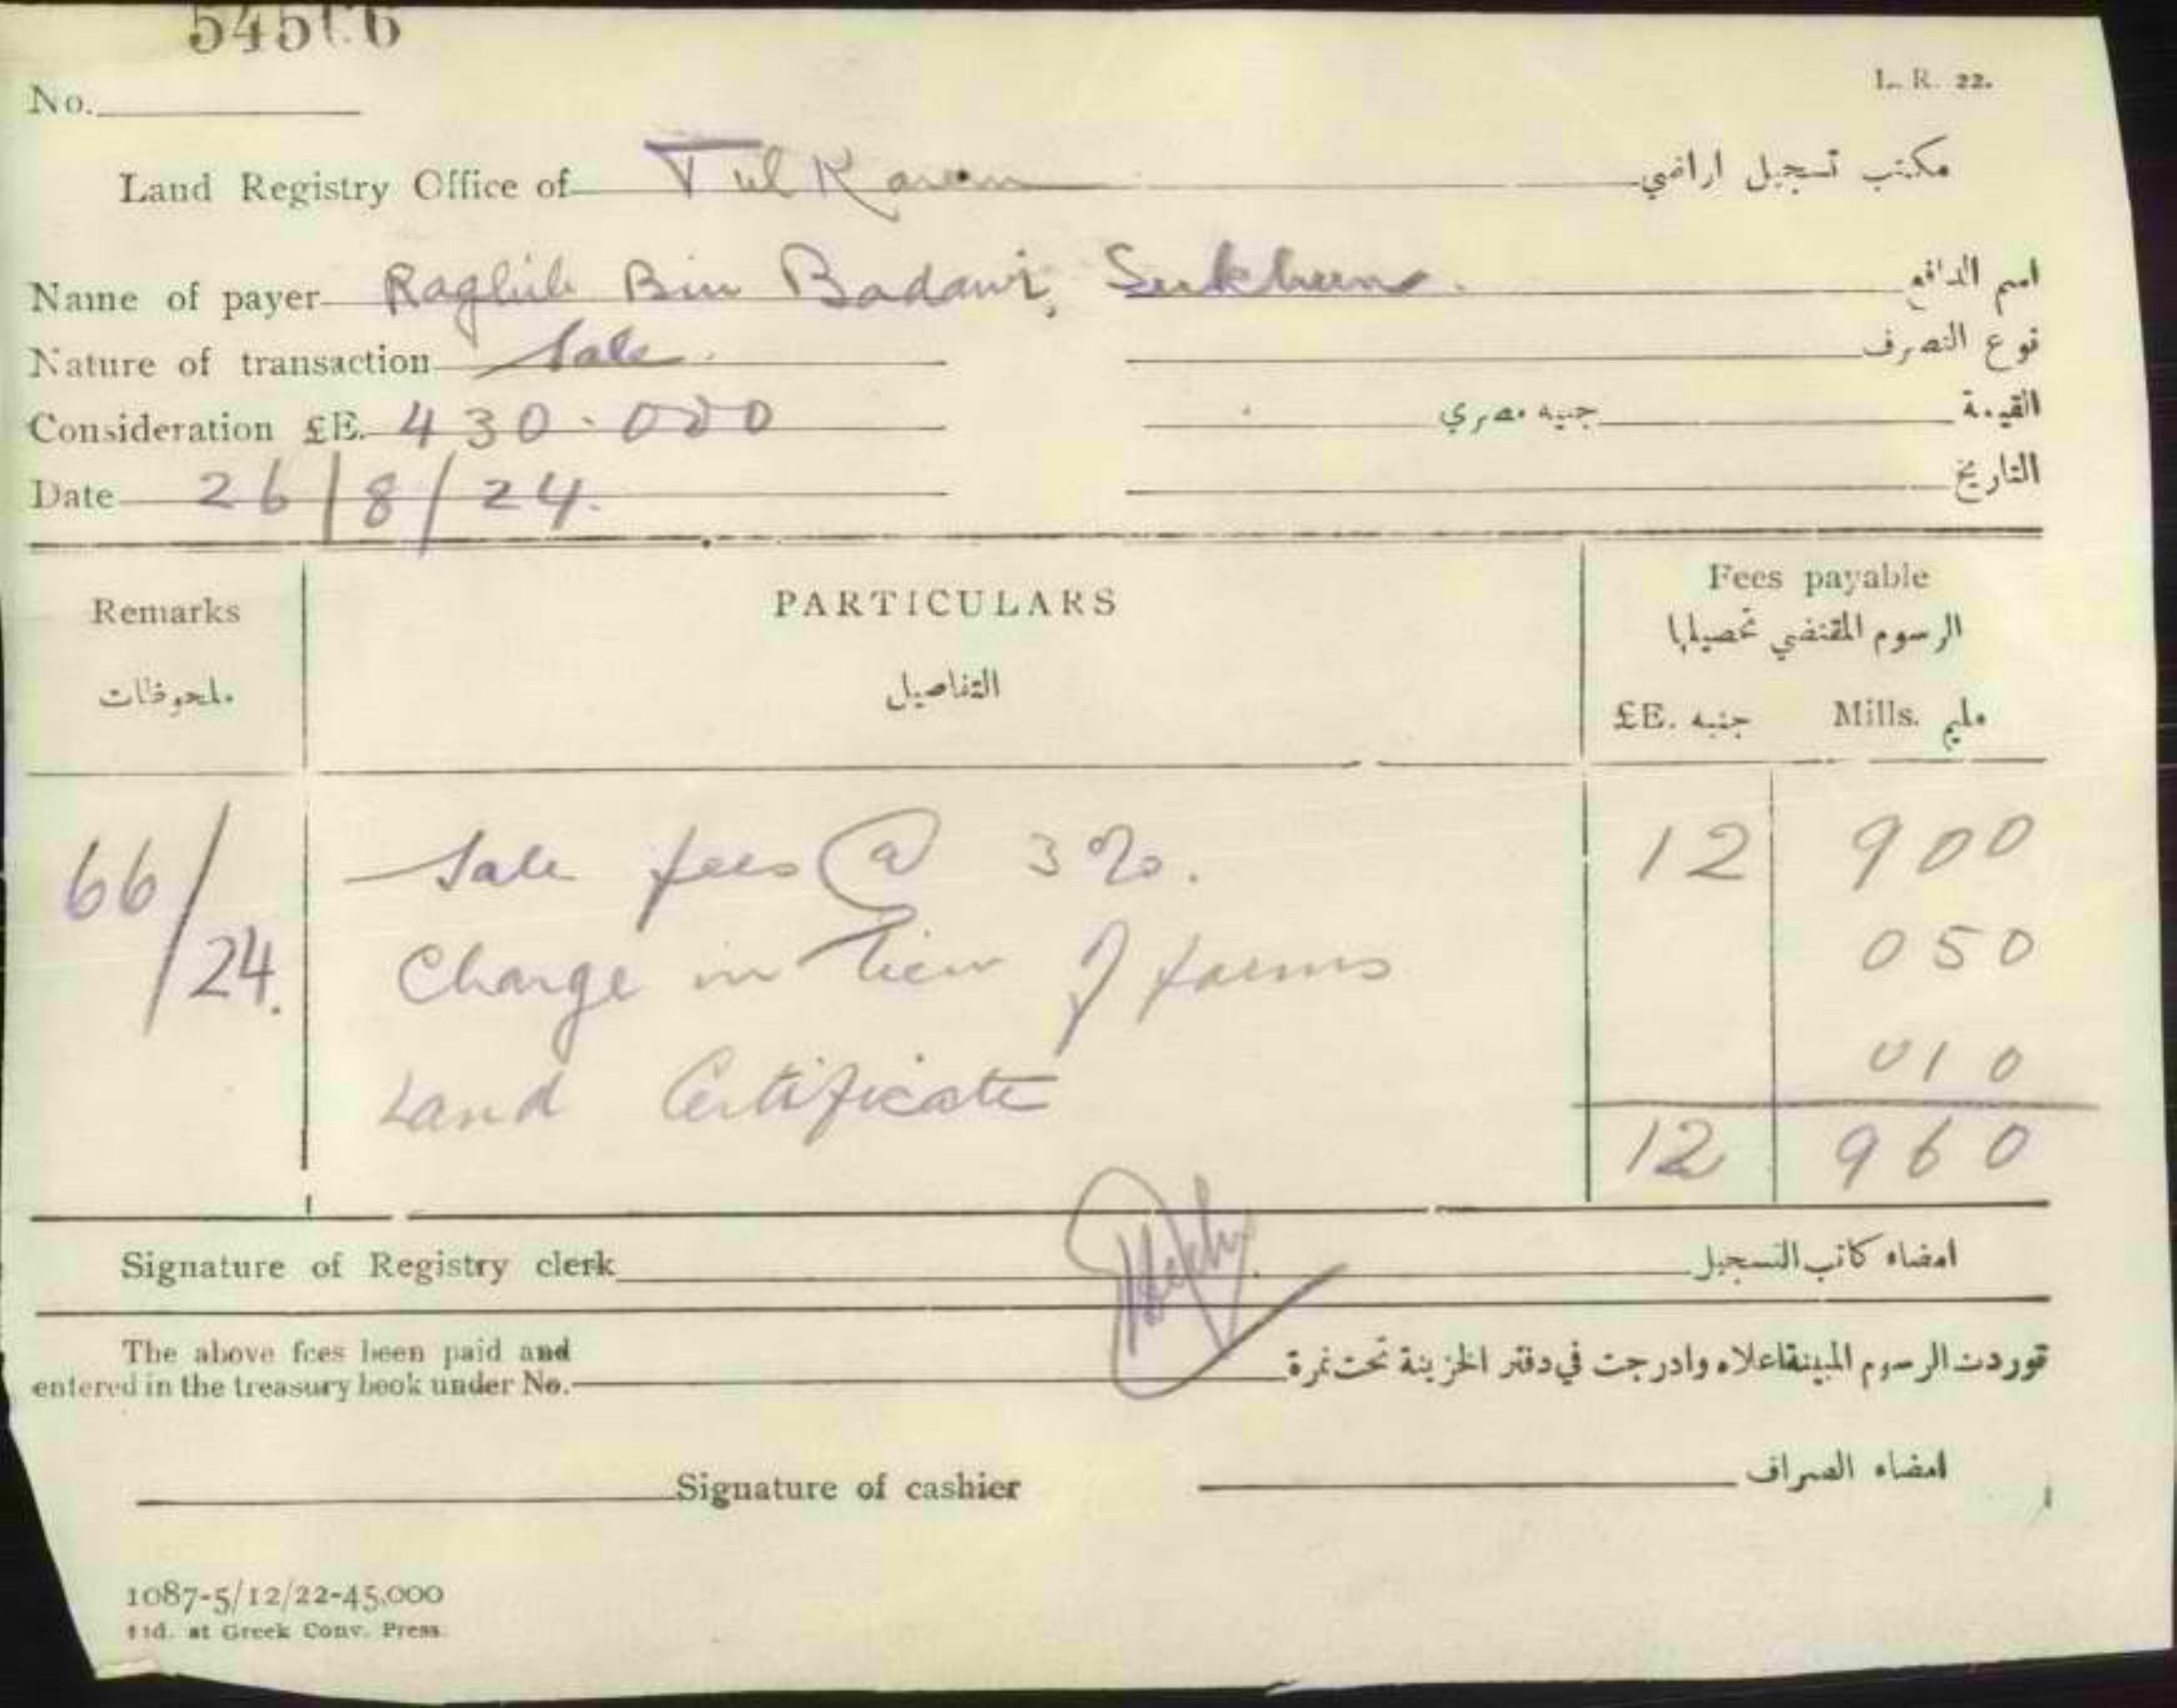 No.
L. R. 22.
Land Registry Office of Tul Karem مكتب تسجيل اراضي
Name of payer Raghib Bin Badawi, اسم الدافع
Nature of transaction Sale. نوع التصرف
Consideration £E. 430.000 جنيه مصري القيمة
Date 26/8/24. التاريخ
Remarks PARTICULARS Fees payable
ملحوظات التفاصيل الرسوم المقتضي تحصيلها
£E. جنيه Mills. مليم
66/24. Sale fees @ 3%. 12 900
Charge in lieu of forms 050
Land Certificate 010
12 960
Signature of Registry clerk امضاء كاتب التسجيل
The above fees been paid and
entered in the treasury book under No. توردت الرسوم المبينة اعلاه وادرجت في دفتر الخزينة تحت نمرة
Signature of cashier امضاء الصراف
1087-5/12/22-45.000
at Greek Conv. Press.